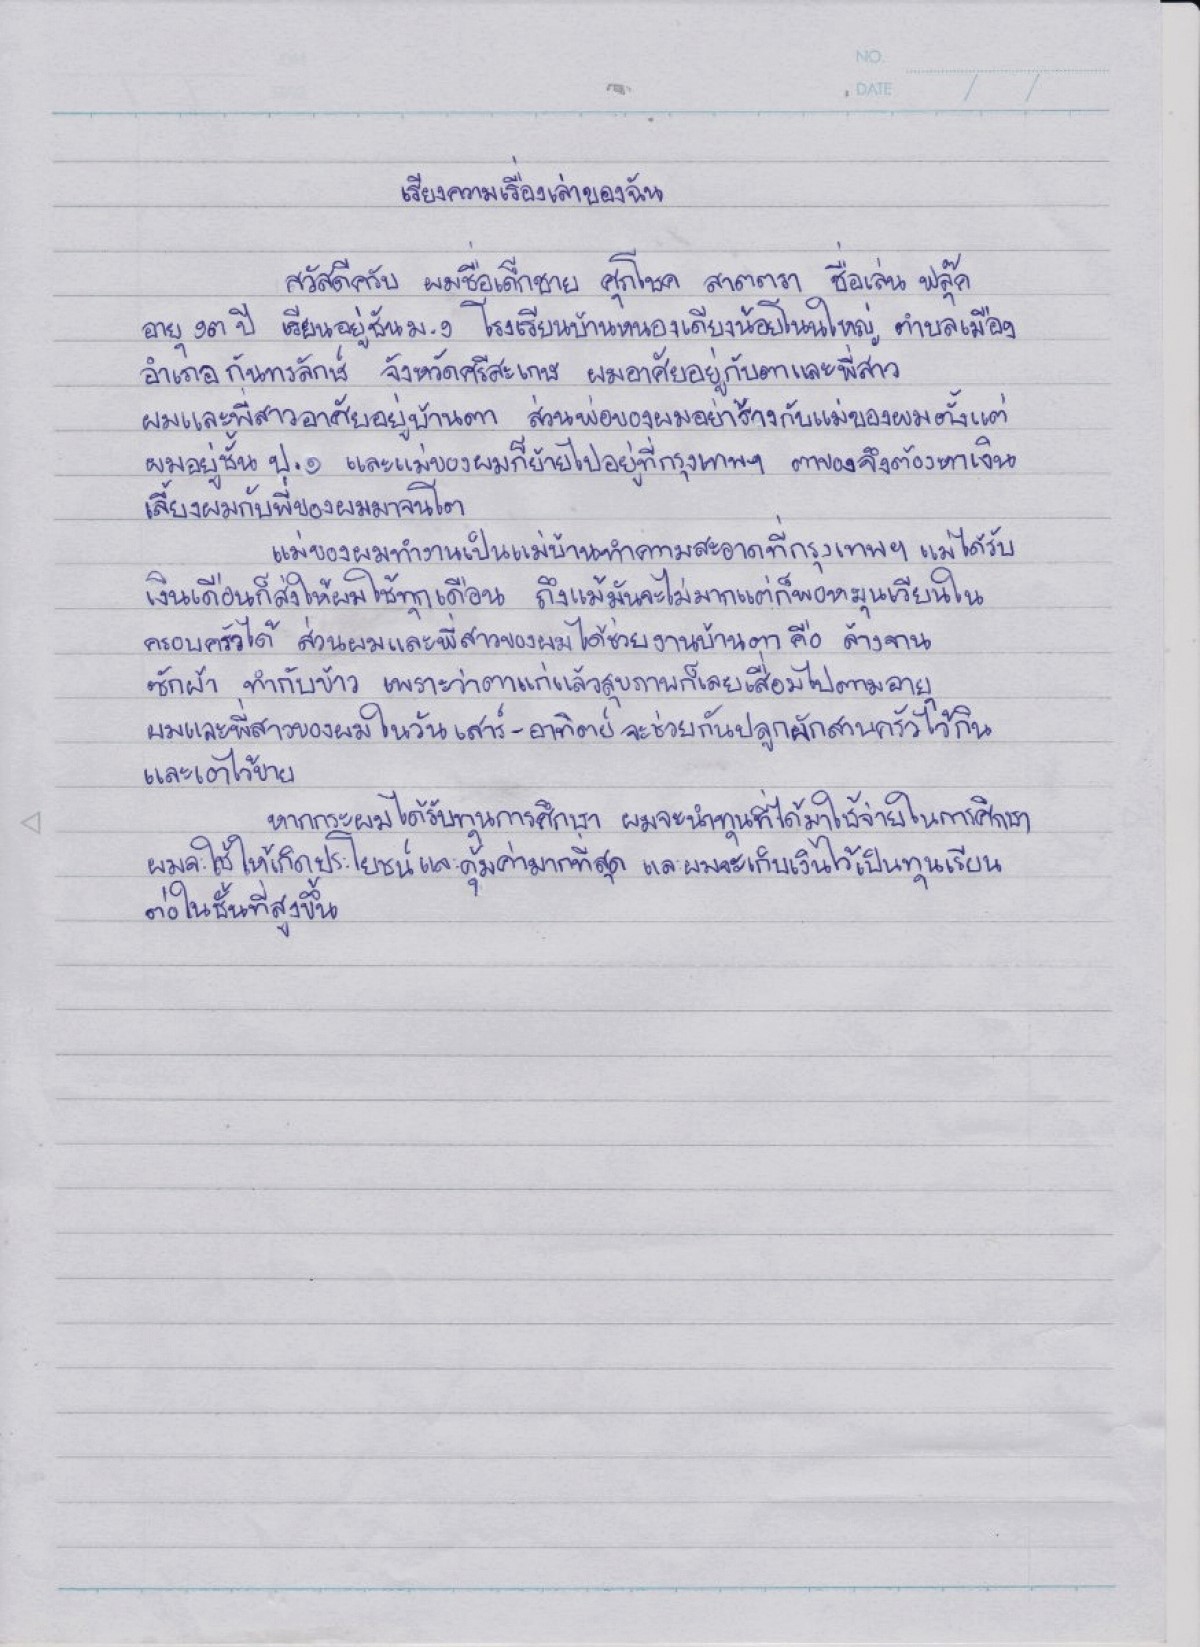 NO.
DATE / /
เรียงความเรื่องเล่าของฉัน
สวัสดีครับ ผมชื่อเด็กชาย ศุภโชค สาตตรา ชื่อเล่น ฟลุ๊ค
อายุ ๑๓ ปี เรียนอยู่ชั้น ม.๑ โรงเรียนบ้านหนองเดียงน้อยโนนใหญ่ ตำบลเมือง
อำเภอ กันทรลักษ์ จังหวัดศรีสะเกษ ผมอาศัยอยู่กับตาและพี่สาว
ผมและพี่สาวอาศัยอยู่บ้านตา ส่วนพ่อของผมอย่าร้างกับแม่ของผมตั้งแต่
ผมอยู่ชั้น ป.๑ และแม่ของผมก็ย้ายไปอยู่ที่กรุงเทพฯ ตาของจึงต้องหาเงิน
เลี้ยงผมกับพี่ของผมมาจนโต
แม่ของผมทำงานเป็นแม่บ้านทำความสะอาดที่กรุงเทพฯ แม่ได้รับ
เงินเดือนก็ส่งให้ผมใช้ทุกเดือน ถึงแม้มันจะไม่มากแต่ก็พอหมุนเวียนใน
ครอบครัวได้ ส่วนผมและพี่สาวของผมได้ช่วยงานบ้านตา คือ ล้างจาน
ซักผ้า ทำกับข้าว เพราะว่าตาแก่แล้วสุขภาพก็เลยเสื่อมไปตามอายุ
ผมและพี่สาวของผมในวันเสาร์-อาทิตย์ จะช่วยกันปลูกผักสวนครัวไว้กิน
และเอาไว้ขาย
หากกระผมได้รับทุนการศึกษา ผมจะนำทุนที่ได้มาใช้จ่ายในการศึกษา
ผมจะใช้ให้เกิดประโยชน์และคุ้มค่ามากที่สุด และผมจะเก็บเงินไว้เป็นทุนเรียน
ต่อในชั้นที่สูงขึ้น